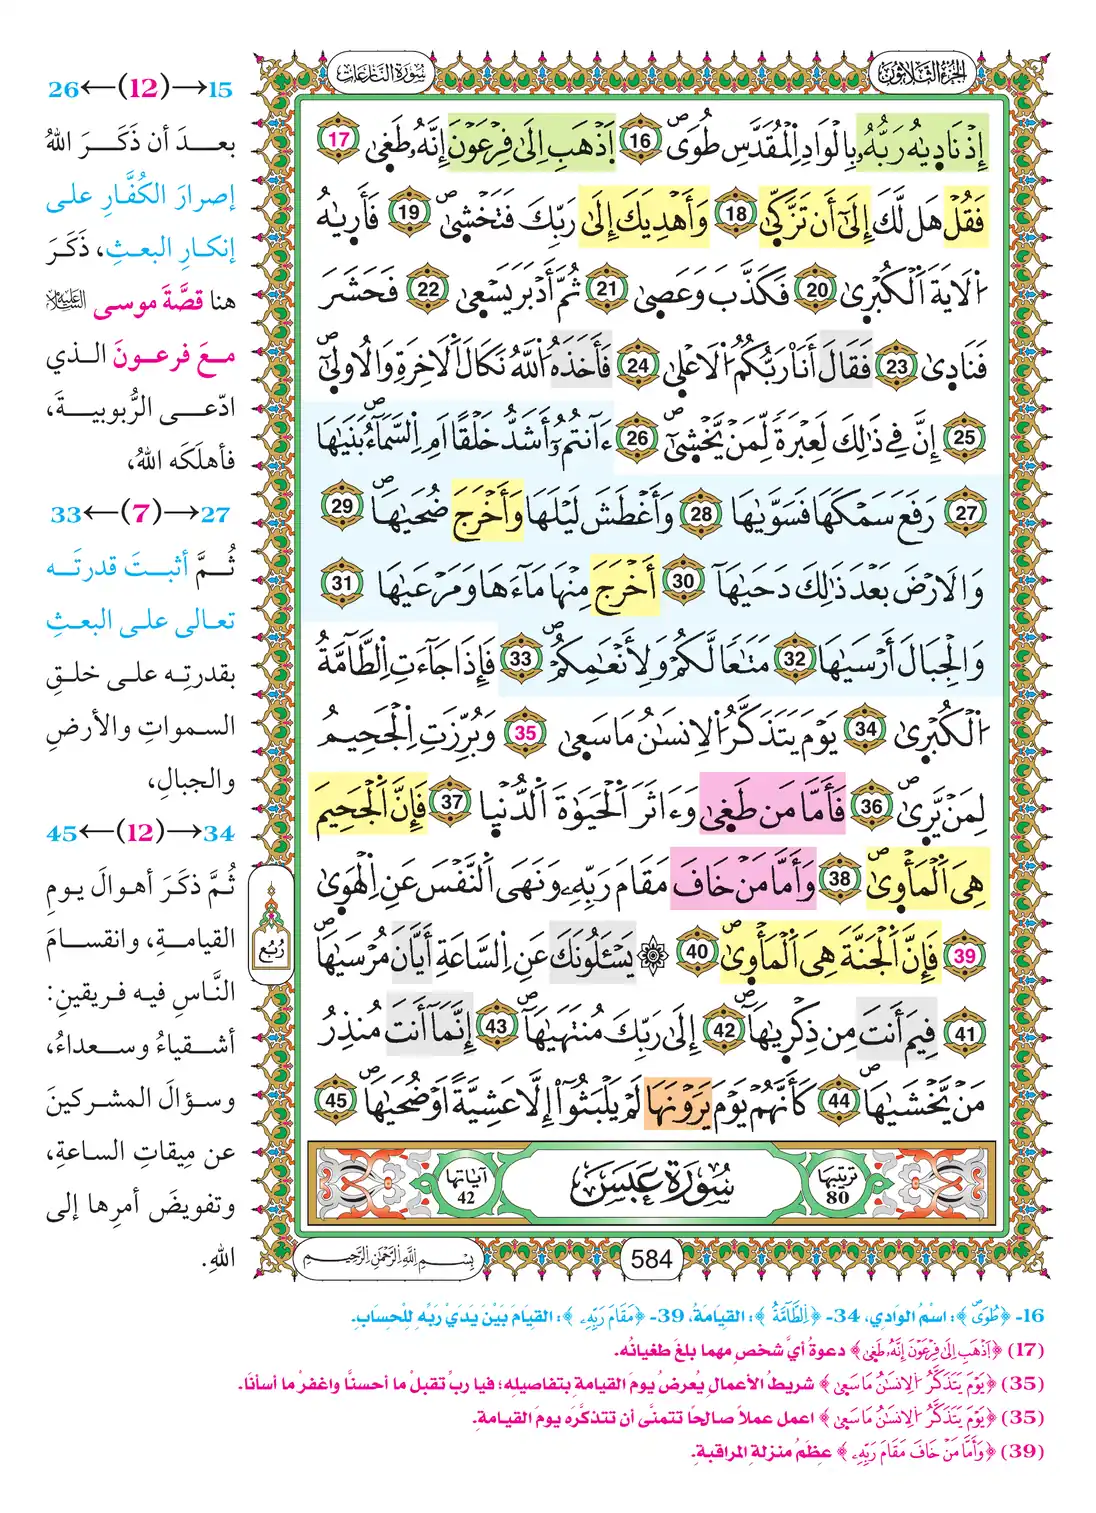 الجزء الثلاثون
سورة النازعات
إِذْ نَادِىٰهُ رَبُّهُۥ بِالْوَادِ الْمُقَدَّسِ طُوَىٰ 16 اَذْهَبِ اِلَىٰ فِرْعَوْنَ إِنَّهُۥ طَغِىٰ 17
فَقُلْ هَل لَّكَ إِلَىٰٓ أَن تَزَّكّٰىٰ 18 وَأَهْدِيَكَ إِلَىٰ رَبِّكَ فَتَخْشِىٰ 19 فَأَرِىٰهُ
اَ۬لَايَةَ اَ۬لْكُبْرِىٰ 20 فَكَذَّبَ وَعَصِىٰ 21 ثُمَّ أَدْبَرَ يَسْعِىٰ 22 فَحَشَرَ
فَنَادِىٰ 23 فَقَالَ أَنَا۠ رَبُّكُمُ اُ۬لَاعْلِىٰ 24 فَأَخَذَهُ اُ۬للَّهُ نَكَالَ اَ۬لَاخِرَةِ وَالُاولِىٰٓ
25 إِنَّ فِي ذَٰلِكَ لَعِبْرَةً لِّمَنْ يَّخْشِىٰٓ 26 ءَآنتُمُۥٓ أَشَدُّ خَلْقًا اَمِ اِ۬لسَّمَآءُ بَنِيٰهَا
27 رَفَعَ سَمْكَهَا فَسَوِّيٰهَا 28 وَأَغْطَشَ لَيْلَهَا وَأَخْرَجَ ضُحَيٰهَا 29
وَالَارْضَ بَعْدَ ذَٰلِكَ دَحَيٰهَآ 30 أَخْرَجَ مِنْهَا مَآءَهَا وَمَرْعَيٰهَا 31
وَالْجِبَالَ أَرْسَيٰهَا 32 مَتَٰعًا لَّكُمْ وَلِأَنْعَٰمِكُمْ 33 فَإِذَا جَآءَتِ اِ۬لطَّآمَّةُ
اُ۬لْكُبْرِىٰ 34 يَوْمَ يَتَذَكَّرُ اُ۬لِانسَٰنُ مَا سَعِىٰ 35 وَبُرِّزَتِ اِ۬لْجَحِيمُ
لِمَنْ يَّرِىٰ 36 فَأَمَّا مَن طَغِىٰ وَءَاثَرَ اَ۬لْحَيَوٰةَ اَ۬لدُّنْيِا 37 فَإِنَّ اَ۬لْجَحِيمَ
هِىَ اَ۬لْمَأْوِىٰ 38 وَأَمَّا مَنْ خَافَ مَقَامَ رَبِّهِۦ وَنَهَى اَ۬لنَّفْسَ عَنِ اِ۬لْهَوِىٰ
39 فَإِنَّ اَ۬لْجَنَّةَ هِىَ اَ۬لْمَأْوِىٰ 40 ۞ يَسْـَٔلُونَكَ عَنِ اِ۬لسَّاعَةِ أَيَّانَ مُرْسَيٰهَا
41 فِيمَ أَنتَ مِن ذِكْرِيٰهَآ 42 إِلَىٰ رَبِّكَ مُنتَهَيٰهَآ 43 إِنَّمَآ أَنتَ مُنذِرُ
مَنْ يَّخْشَيٰهَا 44 كَأَنَّهُمْ يَوْمَ يَرَوْنَهَا لَمْ يَلْبَثُوٓاْ إِلَّا عَشِيَّةً اَوْ ضُحَيٰهَا 45
ترتيبها 80
سُورَةُ عَبَسَ
آياتها 42
584
بِسْمِ اِللَّهِ اِلرَّحْمَٰنِ اِلرَّحِيمِ
رُبُع
26←(12)→15
بعدَ أن ذَكَرَ اللهُ
إصرارَ الكُفَّارِ على
إنكارِ البعثِ، ذَكَرَ
هنا قصَّةَ موسى عليه السلام
معَ فرعونَ الذي
ادّعى الرُّبوبيةَ،
فأهلَكَه اللهُ،
33←(7)→27
ثُمَّ أثبتَ قدرتَه
تعالى على البعثِ
بقدرتِه على خلقِ
السمواتِ والأرضِ
والجبالِ،
45←(12)→34
ثُمَّ ذكَرَ أهوالَ يومِ
القيامةِ، وانقسامَ
النَّاسِ فيه فريقينِ:
أشقياءُ وسعداءُ،
وسؤالَ المشركينَ
عن مِيقاتِ الساعةِ،
وتفويضَ أمرِها إلى
اللهِ.
16- ﴿طُوَىٰ﴾: اسْمُ الوَادِي، 34- ﴿اِ۬لطَّآمَّةُ﴾: القِيَامَةُ، 39- ﴿مَقَامَ رَبِّهِۦ﴾: القِيَامَ بَيْنَ يَدَيْ رَبِّهِ لِلْحِسَابِ.
(17) ﴿اَذْهَبِ اِلَىٰ فِرْعَوْنَ إِنَّهُۥ طَغِىٰ﴾ دعوةُ أيِّ شخصٍ مهما بلغَ طغيانُه.
(35) ﴿يَوْمَ يَتَذَكَّرُ اُ۬لِانسَٰنُ مَا سَعِىٰ﴾ شريطُ الأعمالِ يُعرضُ يومَ القيامةِ بتفاصيلِه؛ فيا ربِّ تقبلْ ما أحسنَّا واغفرْ ما أسأنَا.
(35) ﴿يَوْمَ يَتَذَكَّرُ اُ۬لِانسَٰنُ مَا سَعِىٰ﴾ اعمل عملاً صالحًا تتمنَّى أن تتذكَّرَه يومَ القيامةِ.
(39) ﴿وَأَمَّا مَنْ خَافَ مَقَامَ رَبِّهِۦ﴾ عِظَمُ منزلةِ المراقبةِ.